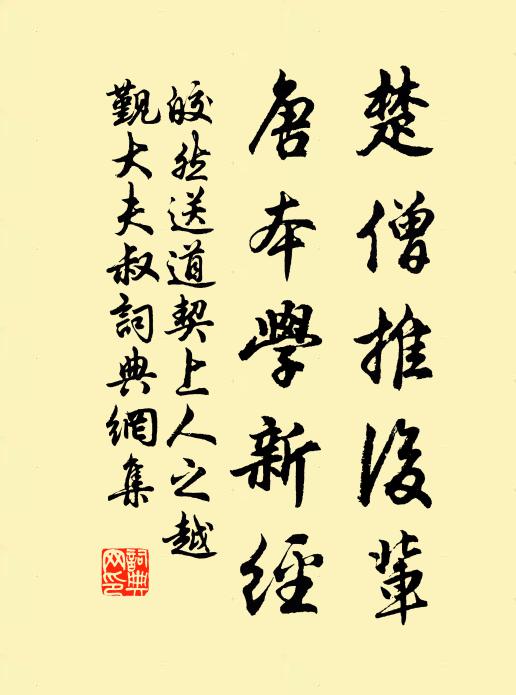 楚僧推後輩
唐本學新經
皎然送道契上人之越
覲大夫叔詞典網集
詞典網印